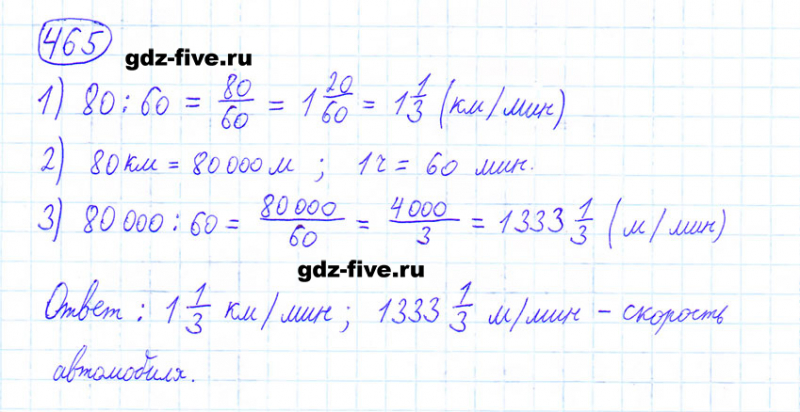 465
gdz-five.ru
1) 80 : 60 = 80/60 = 1 20/60 = 1 1/3 (км/мин)
2) 80 км = 80 000 м ; 1 ч = 60 мин.
3) 80 000 : 60 = 80 000/60 = 4 000/3 = 1333 1/3 (м/мин)
gdz-five.ru
Ответ : 1 1/3 км/мин ; 1333 1/3 м/мин – скорость
автомобиля.